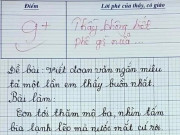 Điểm
Lời phê của thầy, cô giáo
9+
Thầy không biết
phê gì nữa...
Đề bài: Viết đoạn văn ngắn miêu
tả một lần em thấy buồn nhất.
Bài làm:
Con tới thăm mộ ba, nhìn tấm
bia lạnh lẽo mà nước mắt cứ rơi